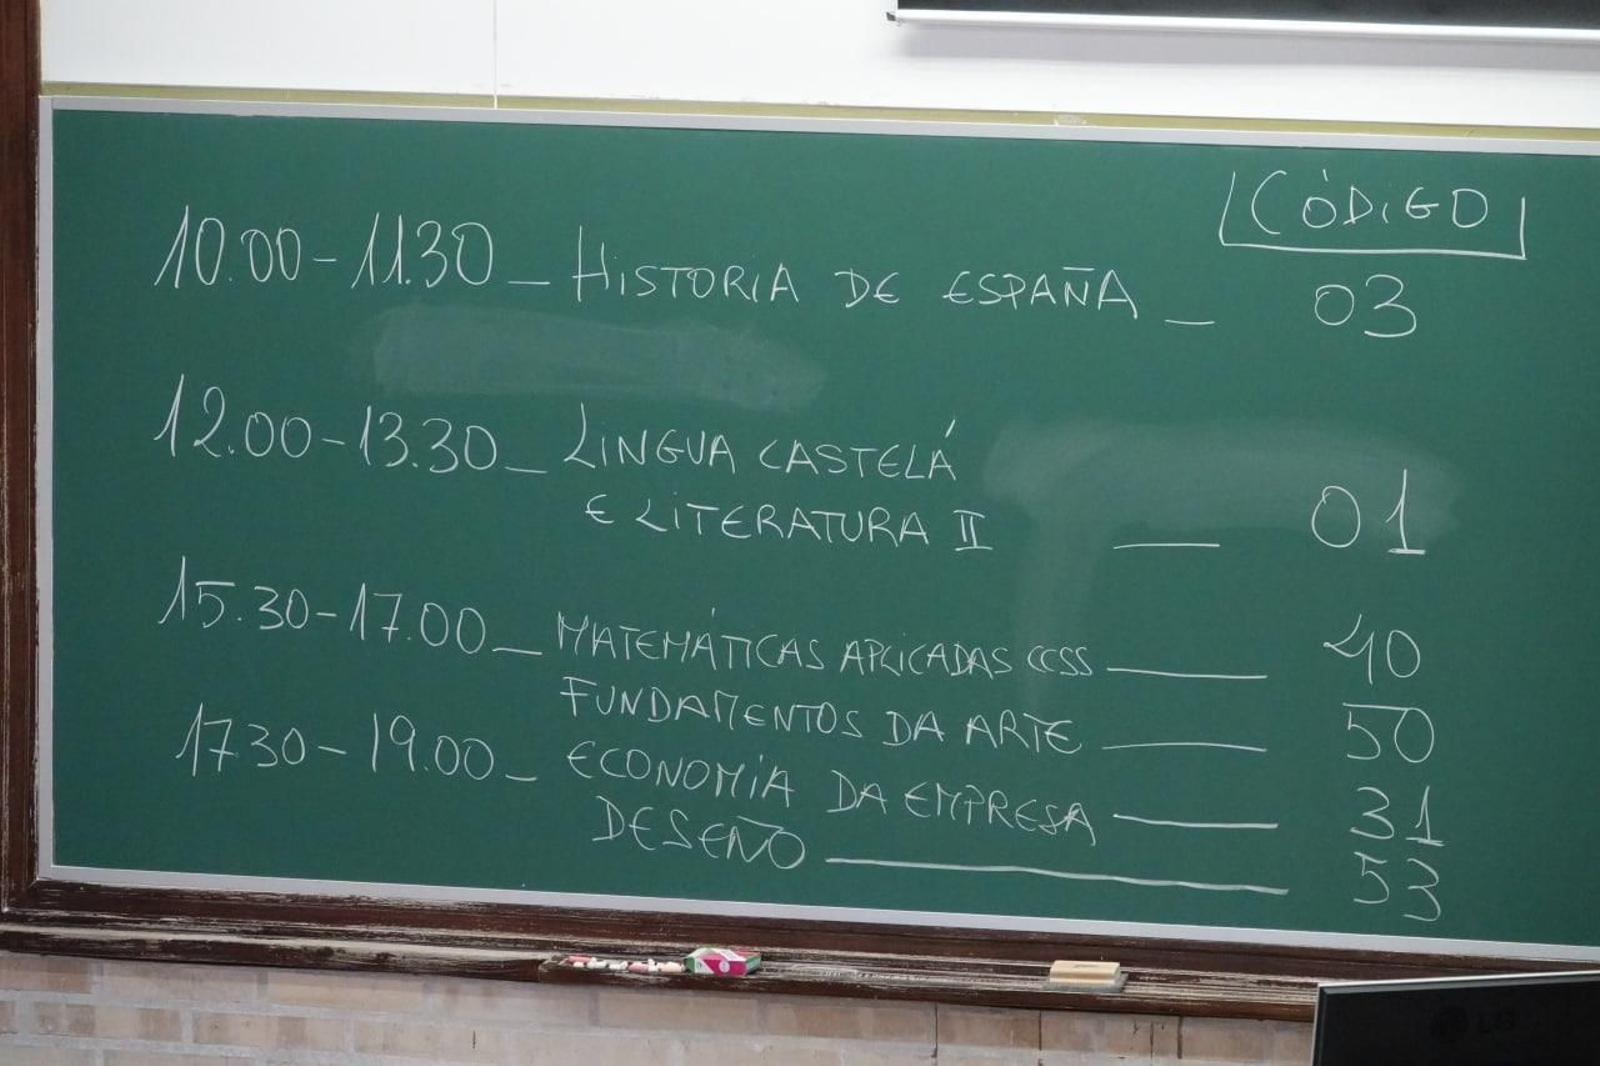 CÓDIGO
10.00-11.30 _ HISTORIA DE ESPAÑA _ 03
12.00-13.30 _ LINGUA CASTELÁ
E LITERATURA II __ 01
15.30-17.00 _ MATEMÁTICAS APLICADAS CCSS __ 40
FUNDAMENTOS DA ARTE __ 50
17.30-19.00 _ ECONOMÍA DA EMPRESA __ 31
DESEÑO __ 53
LG